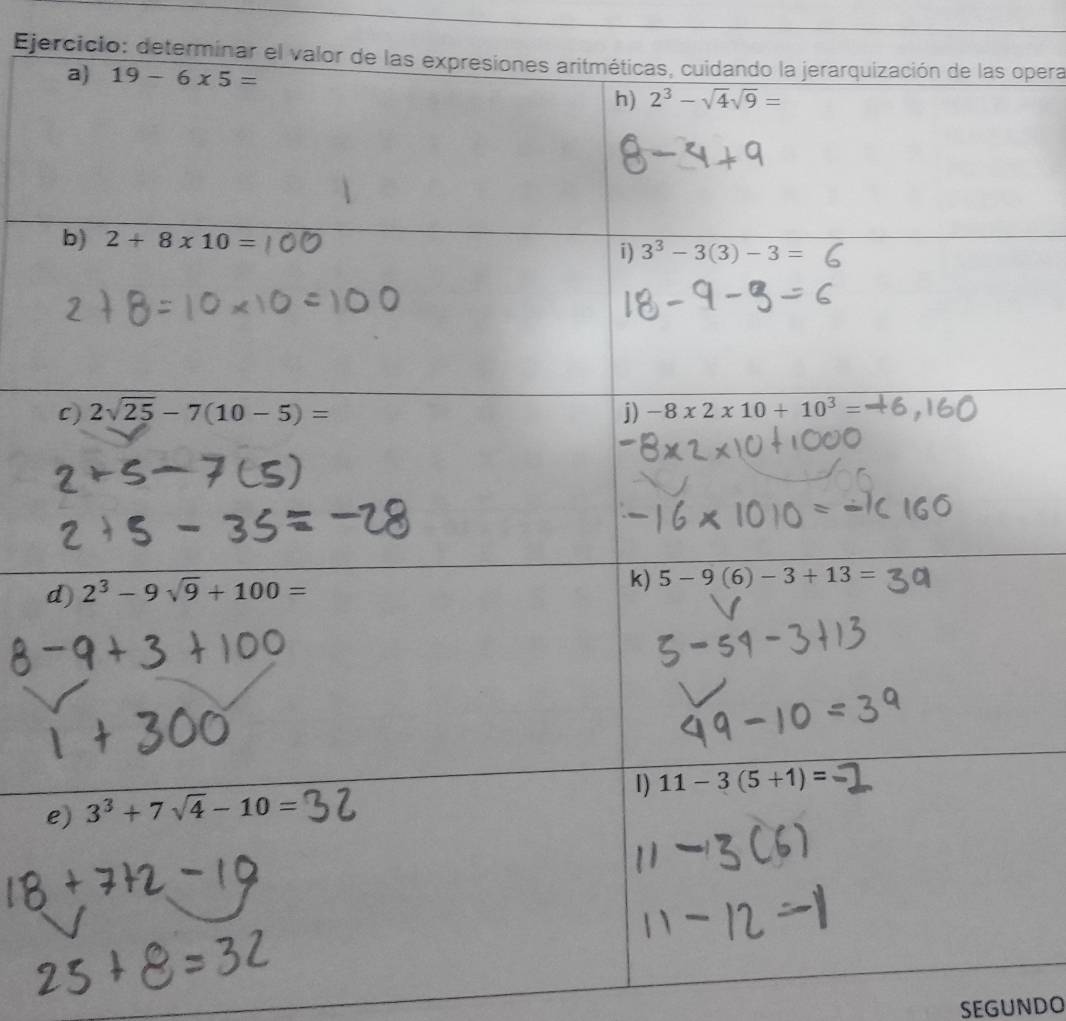 Ejercicio: determinar el valor de las expresiones aritméticas, cuidando la jerarquización de las opera
a) 19 - 6 x 5 =
b) 2 + 8 x 10 = 100
2 + 8 = 10 × 10 = 100
c) 2√25 - 7(10 - 5) =
2 + 5 - 7 (5)
2 + 5 - 35 = -28
d) 2³ - 9 √9 + 100 =
8 - 9 + 3 + 100
1 + 300
e) 3³ + 7 √4 - 10 = 32
18 + 7 + 2 - 10
25 + 8 = 32
h) 2³ - √4√9 =
8 - 4 + 9
i) 3³ - 3(3) - 3 = 6
18 - 9 - 3 = 6
j) -8 x 2 x 10 + 10³ = -16,160
-8 × 2 × 10 + 1000
-16 × 1010 = -16 160
k) 5 - 9 (6) - 3 + 13 = 39
5 - 54 - 3 + 13
49 - 10 = 39
l) 11 - 3 (5 +1) = -1
11 - 3 (6)
11 - 12 = -1
SEGUNDO